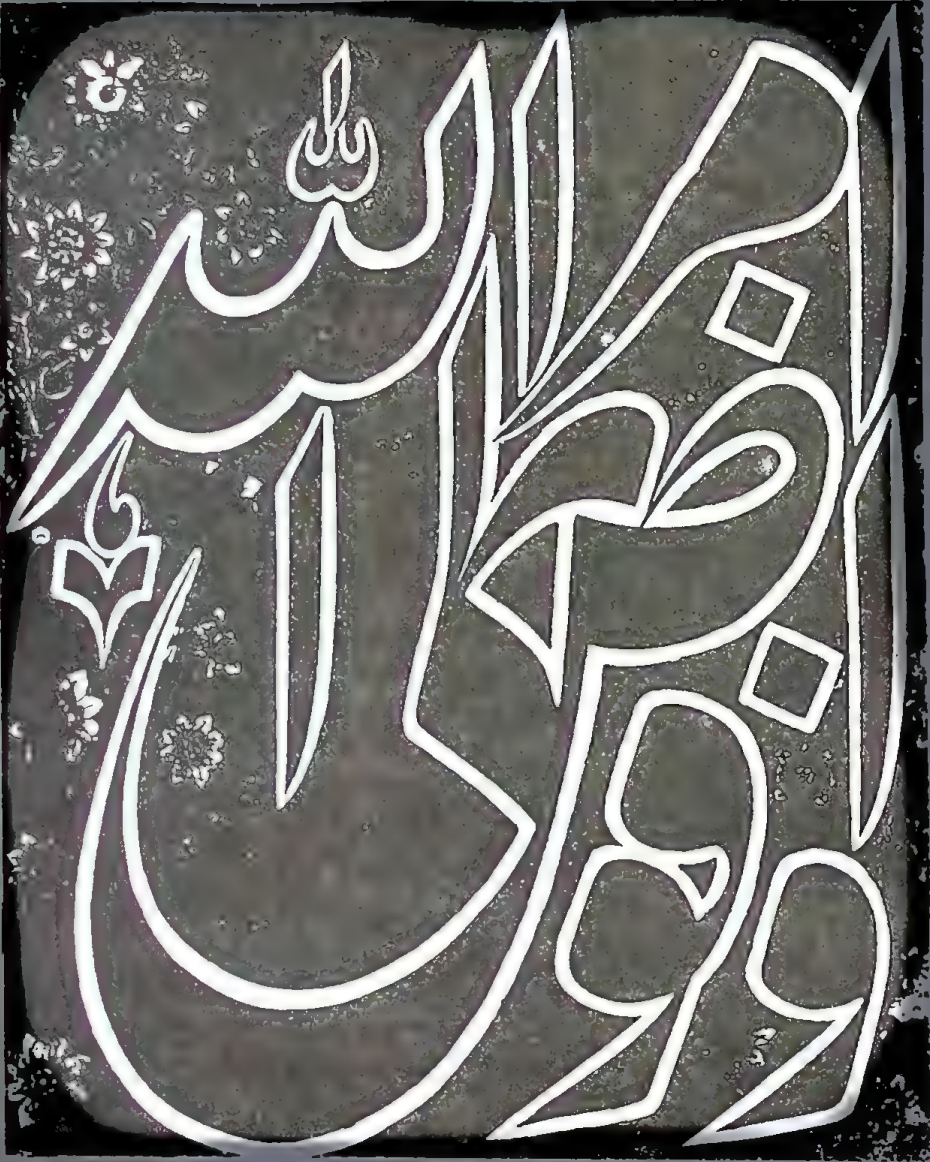 وافوض امری الی الله